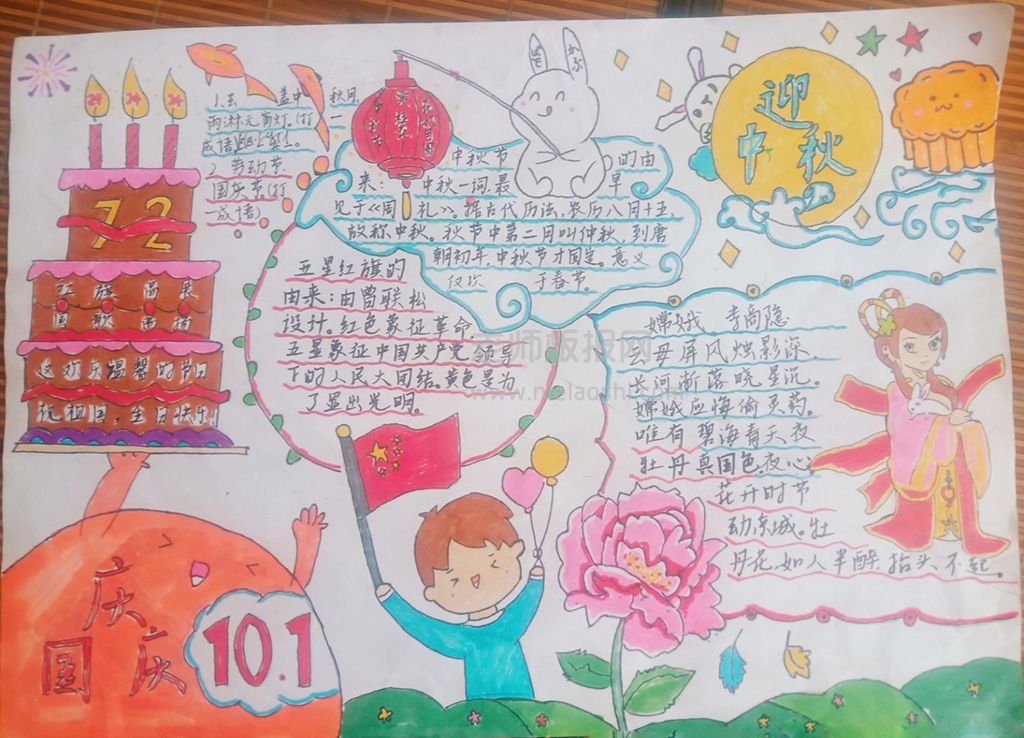 72
红旗高展
国歌
这欢乐温馨的节日
祝祖国:生日快乐!
1.云 盖中 秋月
雨淋元宵灯(打一
成语)
劳动节
国庆节(打
一成语)
中秋节 的由
来: 中秋一词,最 早
见于《周 礼》。据古代历法,农历八月十五,
故称中秋。秋节中第二月叫仲秋,到唐
朝初年,中秋节才固定。意义
仅次 于春节。
迎
中秋
五星红旗的
由来:由曾联松
设计。红色象征革命.
五星象征中国共产党领导
下的人民大团结。黄色是为
了显出光明。
嫦娥 李商隐
云母屏风烛影深,
长河渐落晓星沉。
嫦娥应悔偷灵药。
唯有碧海青天夜
牡丹真国色,夜心
花开时节
动京城。牡
丹花,如人半醉,抬头不起。
庆
国庆
10.1